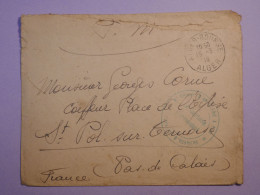 F. M
ALGER
Monsieur Georges Corne
Coiffeur Place de l'Eglise
St Pol-sur-Ternoise
France (Pas-de-Calais)